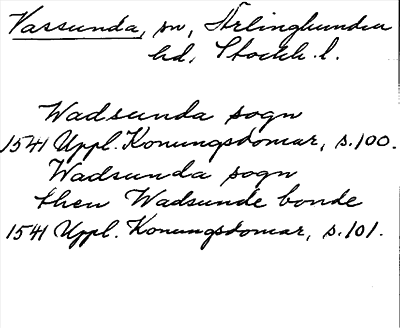 Vassunda, sn, Ärlinghundra
hd, Stockh. l.
Wadsunda sogn
1541 Uppl. Konungsdomar, s. 100.
Wadsunda sogn
then Wadsunde bonde
1541 Uppl. Konungsdomar, s. 101.